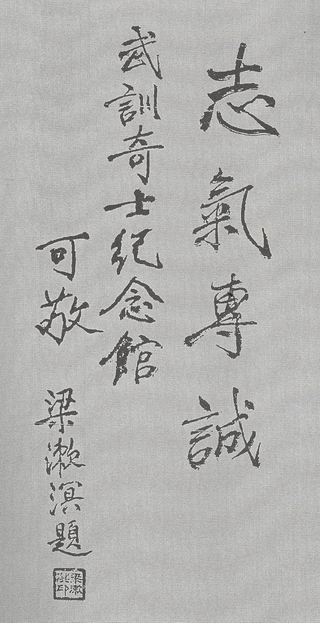 志氣專誠
武訓奇士紀念館
可敬
梁漱溟題